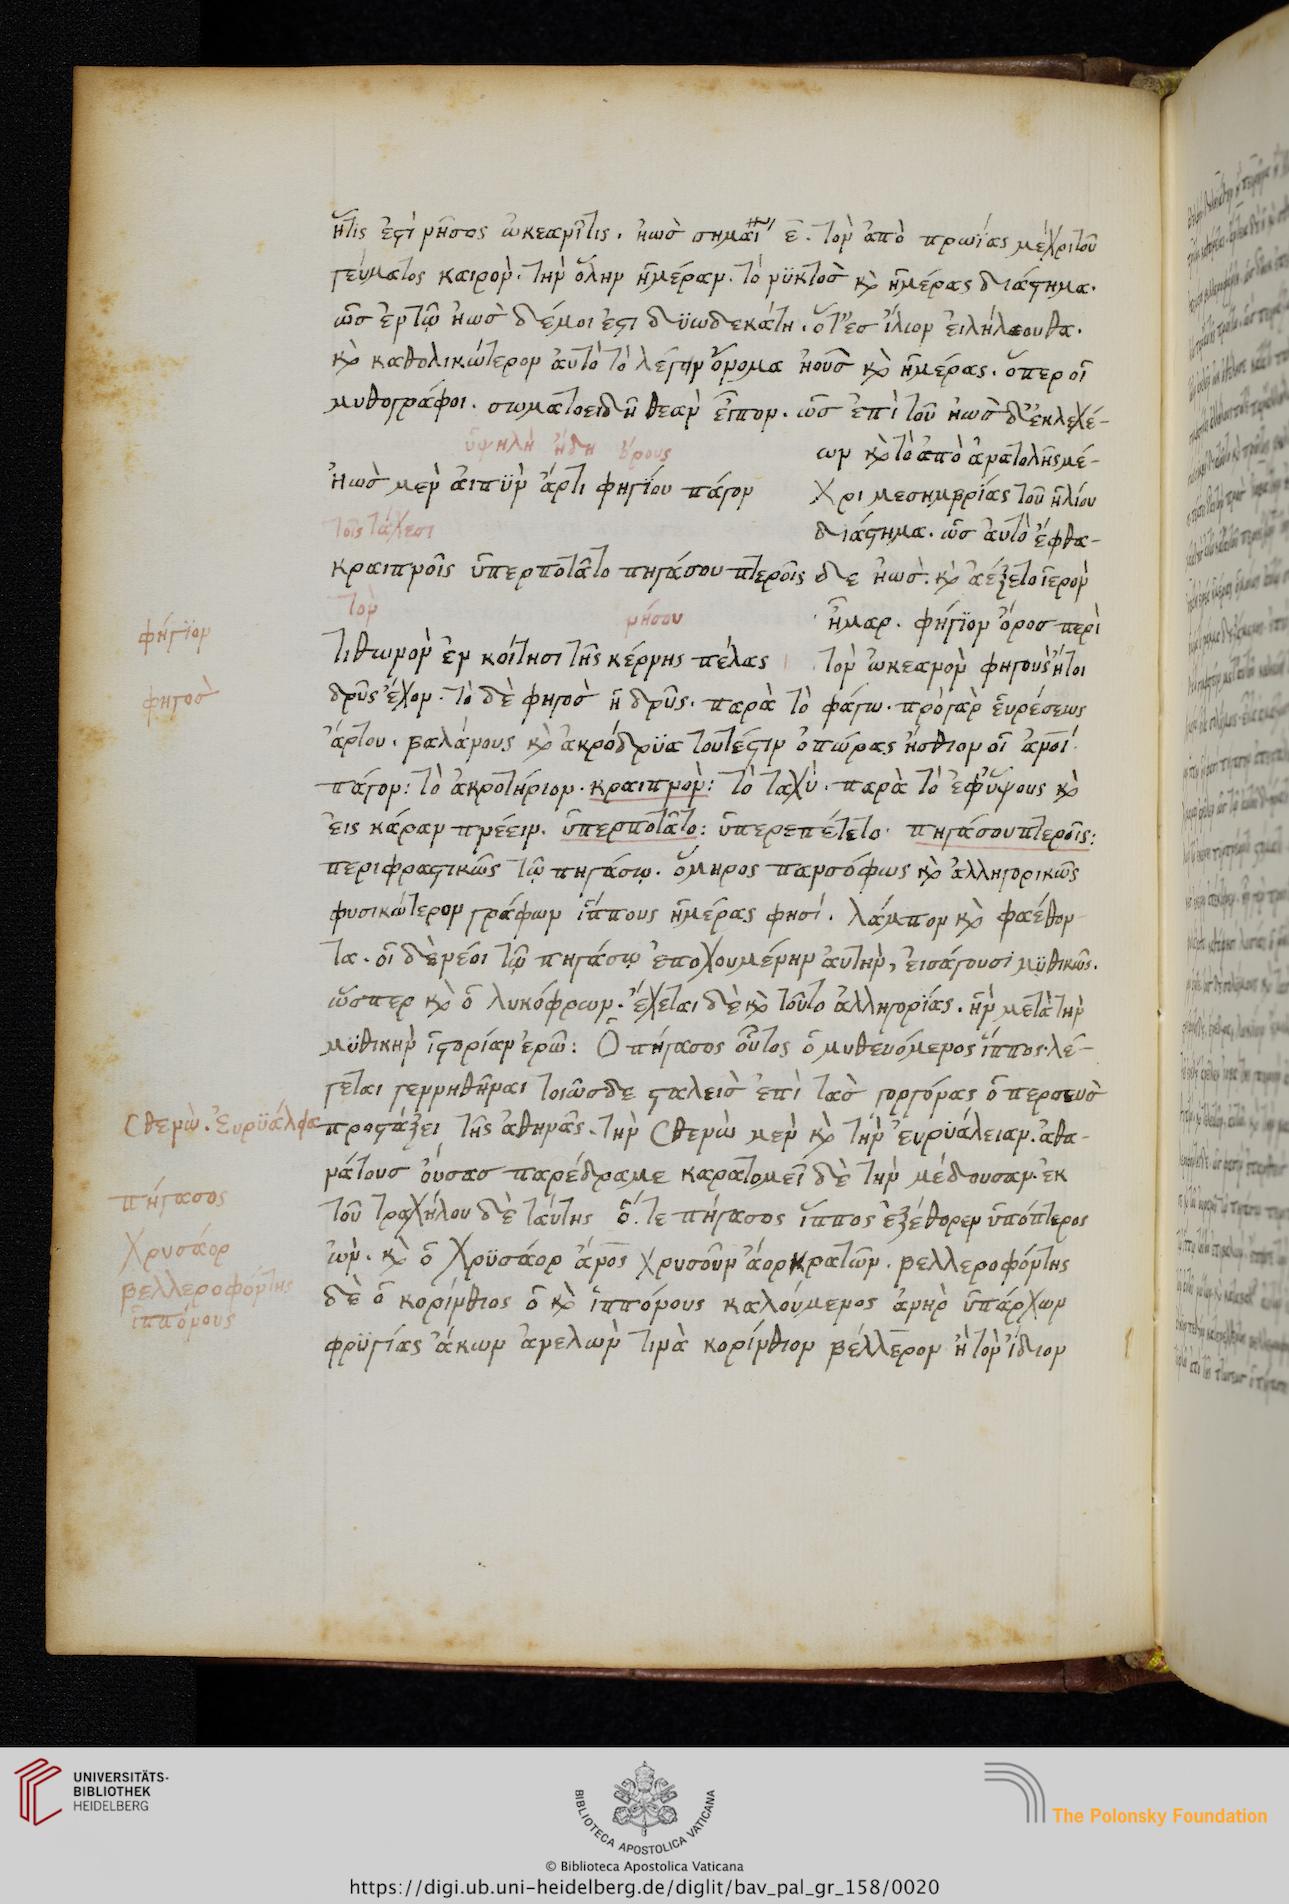 ἥτις ἐστὶ νῆσος ὠκεανῖτις. ἠὼσ σημαί ε. τὸν ἀπὸ πρωίας μέχρι τοῦ
γεύματος καιρὸν. τὴν ὅλην ἡμέραν. τὸ νϋκτὸσ καὶ ἡμέρας διάστημα.
ὡσ ἐν τῷ ἠὼσ δέ μοι ἐστι δϋωδεκάτη. ὅτ' ἐσ ἴλιον εἰλήλουθα.
καὶ καθολικώτερον αὐτὸ τὸ λέγην ὄνομα ἠοῦσ καὶ ἡμέρας. ὅπερ οἱ
μυθογράφοι. σωματοειδῆ θεὰν εἶπον. ὡσ ἐπὶ τοῦ ἠὼσ δ' ἐκ λεχέ-
ὑψηλὴν ἤδη ὄρους
ων καὶ τὸ ἀπὸ ἀνατολῆς μέ-
ἠὼσ μεν ἀιπϋν ἄρτι φηγίου πάγον
χρι μεσημβρίας τοῦ ἡλίου
τοῖς τάχεσι
διάστημα. ὡσ αὐτὸ ἔφθα-
κραιπνοῖς ὑπερποτᾶτο πηγάσου πτεροῖς
δε ἠὼσ. καὶ ἀέξετο ἱερὸν
τὸν
νήσου
ἦμαρ. φήγϊον ὄρος περὶ
φήγϊον
τιθωνὸν ἐν κοίτησι τῆς κέρνης πέλας
τὸν ὠκεανὸν φηγοὺς ἤτοι
φηγοσ
δρῦς ἔχον. τὸ δὲ φηγοσ ἡ δρῦς. παρὰ τὸ φάγω. πρὸ γὰρ εὑρέσεως
ἄρτου. βαλάνους καὶ ἀκρόδρϋα τουτέστιν ὀπώρας ἤσθιον οἱ ἀνοί.
πάγον: τὸ ἀκροτήριον. κραιπνὸν: τὸ ταχὺ. παρὰ τὸ ἐφ' ὕψους καὶ
εἰς κάραν πνέειν. ὑπερποτᾶτο: ὑπερεπέτετο. πηγάσου πτεροῖς:
περιφραστικῶς τῷ πηγάσῳ. ὅμηρος πανσόφως καὶ ἀλληγορικῶς
φυσικώτερον γράφων ἵππους ἡμέρας φησί. λάμπον καὶ φαέθον-
τα. οἱ δὲ νέοι τῷ πηγάσῳ ἐποχουμένην αὐτὴν, εἰσάγουσι μϋθικῶς.
ὥσπερ καὶ ὁ λυκόφρων. ἔχεται δὲ καὶ τοῦτο ἀλληγορίας. ἣν μετὰ τὴν
μϋθικὴν ἱστορίαν ἐρῶ: Ὁ πήγασος οὗτος ὁ μυθευόμενος ἵππος. λέ-
γεται γεννηθῆναι τοιῶσδε σταλεὶσ ἐπὶ τὰσ γοργόνας ὁ περσευσ
Σθενὼ. ἐυρϋάλεα
προστάξει τῆς ἀθηνᾶς. τὴν Σθενὼ μεν καὶ τὴν ἐυρϋάλειαν. ἀθα-
νάτουσ οὔσασ παρέδραμε καρατομεῖ δὲ τὴν μέδουσαν. ἐκ
πήγασος
τοῦ τραχήλου δὲ ταύτης ὅ. τε πήγασος ἵππος ἐξέθορεν ὑπόπτερος
Χρυσάορ
ὢν. καὶ ὁ Χρϋσάορ ἄνος χρυσοῦν ἄορ κρατῶν. βελλεροφόντης
βελλεροφόντης
δὲ ὁ κορίνθιος ὁ καὶ ἱππόνους καλούμενος ἀνὴρ ὑπάρχων
ἱππόνους
φρϋγίας ἄκων ἀνελὼν τινὰ κορίνθιον βέλλερον ἢ τὸν ἴδιον
UNIVERSITÄTS-
BIBLIOTHEK
HEIDELBERG
BIBLIOTECA APOSTOLICA VATICANA
The Polonsky Foundation
© Biblioteca Apostolica Vaticana
https://digi.ub.uni-heidelberg.de/diglit/bav_pal_gr_158/0020